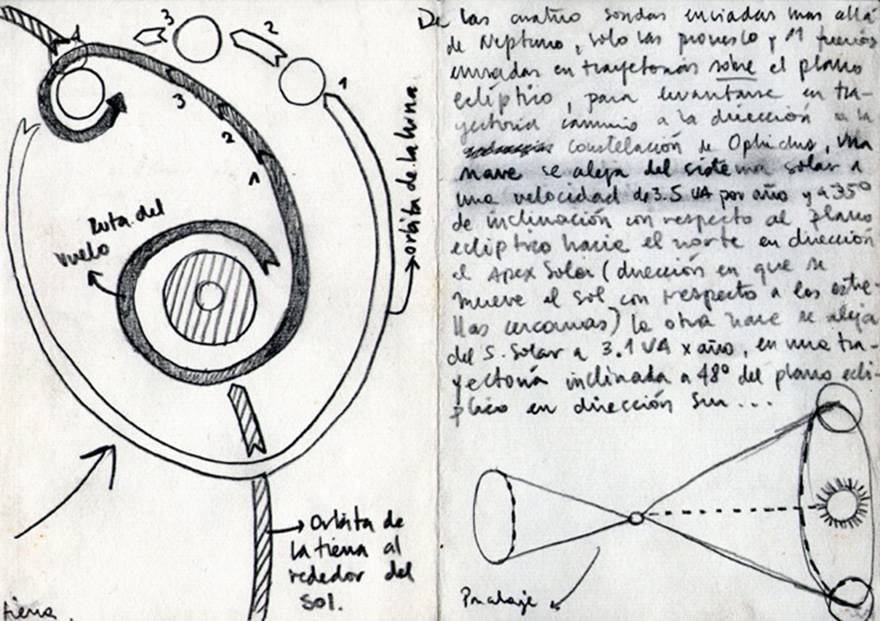 3
2
1
3
2
1
orbita de la luna
Ruta del
vuelo
Orbita de
la tierra al
rededor del
Sol.
tierra.
De las cuatro sondas enviadas mas allá
de Neptuno, solo las pioneer 10 y 11 fueron
enviadas en trayectorias sobre el plano
eclíptico, para levantarse en tra-
yectoria camino a la dirección a la
constelación de Ophichus, una
nave se aleja del sistema solar a
una velocidad de 3.5 UA por año y a 35°
de inclinación con respecto al plano
ecliptico hacia el norte en dirección
el Apex Solar (dirección en que se
mueve el sol con respecto a las estre-
llas cercanas) la otra nave se aleja
del S. Solar a 3.1 UA x año, en una tra-
yectoria inclinada a 48° del plano eclí-
ptico en dirección Sur...